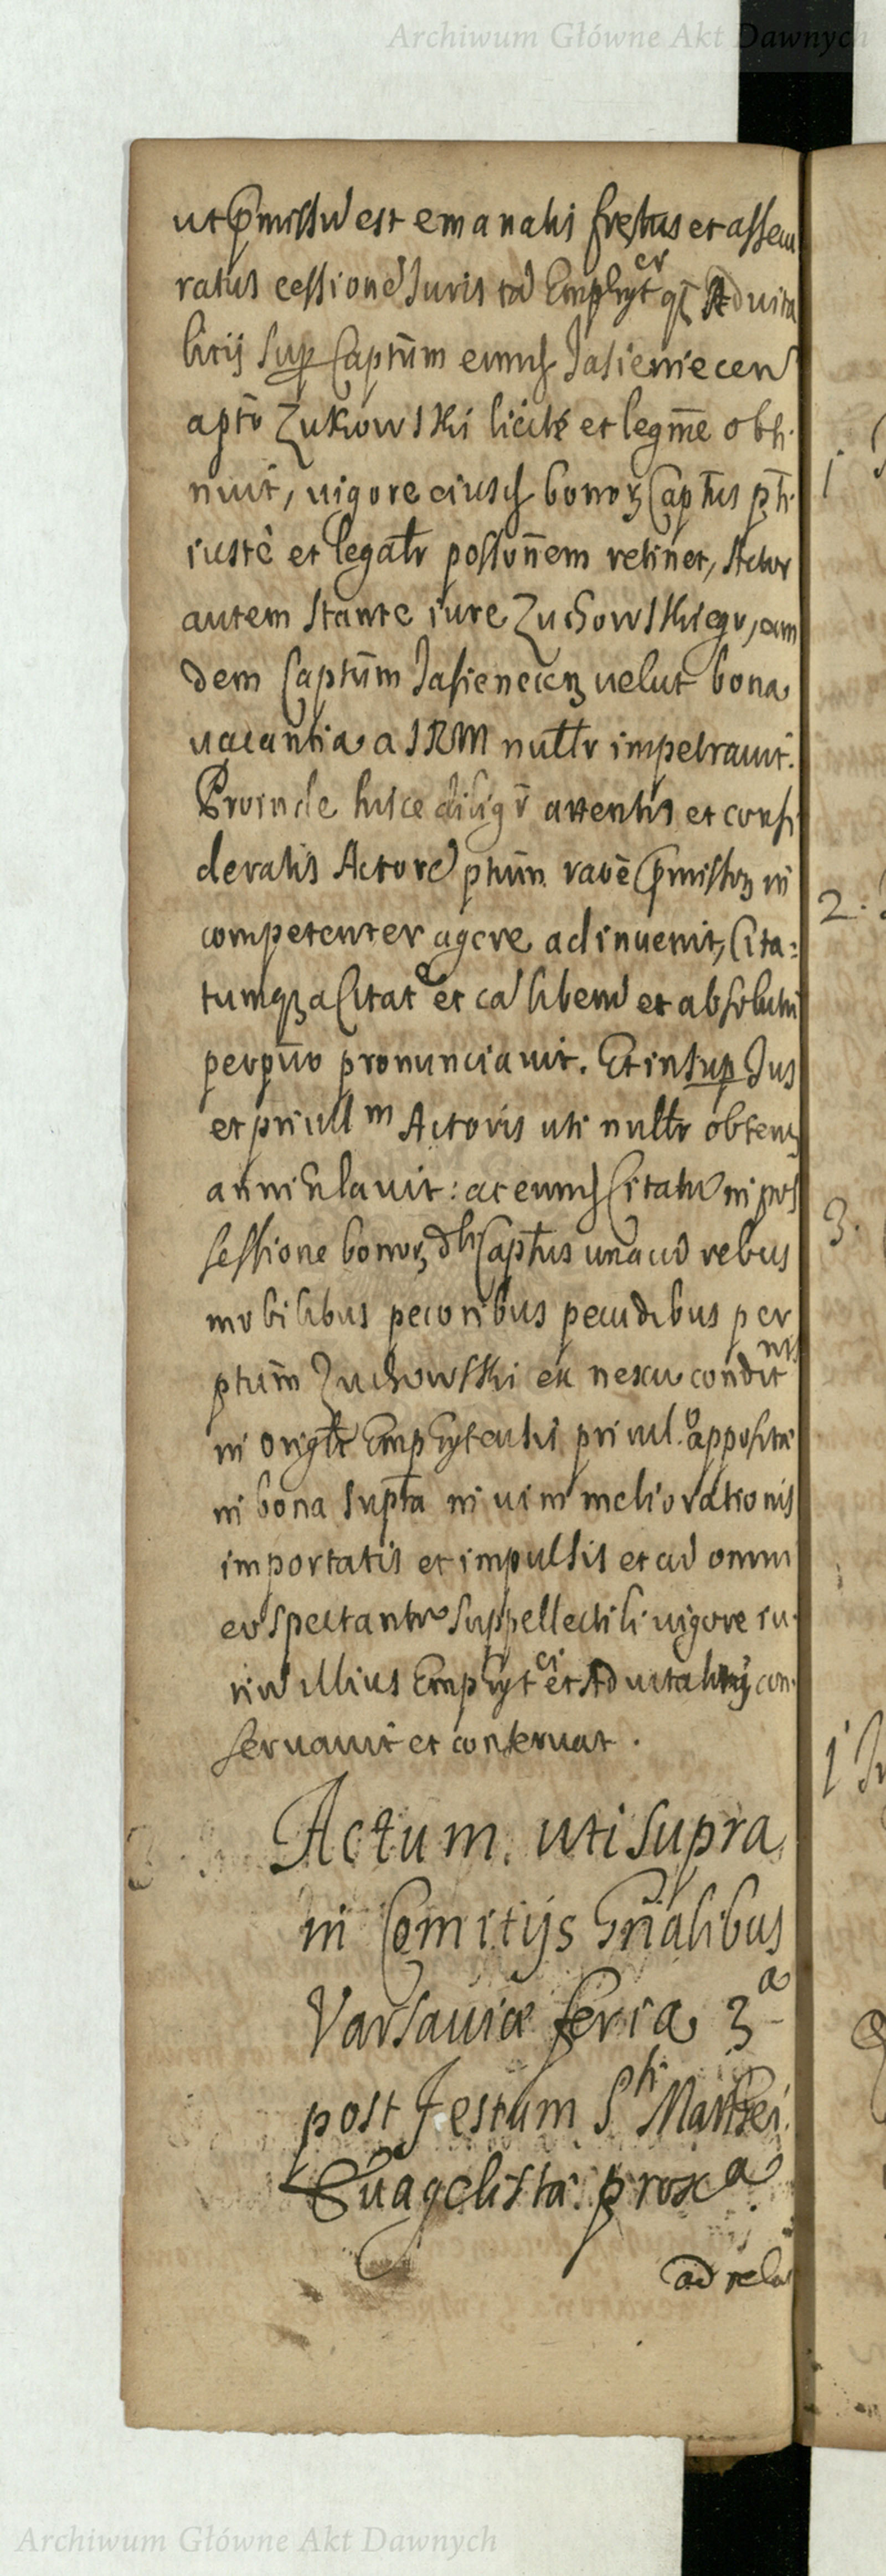 Archiwum Główne Akt Dawnych
ut p̄missū est emanatis fretus et assecu
ratus cessionē Juris tā Emphyt^er q̄ Advita
litij sup Capt̄um eiusd Jasieniecen
a pt̄o Zukowski licitè et legm̄e obti
nuit, vigore eiusd bonorꝫ Capt̄us pt̄i
iustè et legalr possōnem retinet, Actor
autem stante iure Zuchowskiego, eam
dem Capt̄um Jasieneceꝫ velut bona
vacantia a SRM nullr impetravit.
Proinde hisce attentis et consi
deratis Actorē pt̄um raōe p̄missorꝫ in
competenter agere adinvenit, Cita=
tumqꝫ a Citat^e et cā liberū et absolutū
perpūo pronunciavit. Et insup Jus
et privill^m Actoris uti nullr obtenꝫ
annihilavit: ac eumd Citatū in pos
sessione bonorꝫ d^ti Capt̄us unacū rebus
mobilibus pecoribus pecudibus per
pt̄um Zuchowski ex nexu condit^nis
in origlr Emphyteutis privil.^o apposita
in bona supt̄a in vim meliorationis
importatis et impulsis et cū omni
eo spectante suppellectili vigore iu
riū illius Emphyt^ci et Advitalitij con
servavit et conservat.
Actum. uti supra
in Comitijs Gn̄alibus
Varsaviæ feria 3^a
post Festum S^ti Matthei
Evāgelistæ prox^a
ad rela
1.
2.
3.
1
Archiwum Główne Akt Dawnych